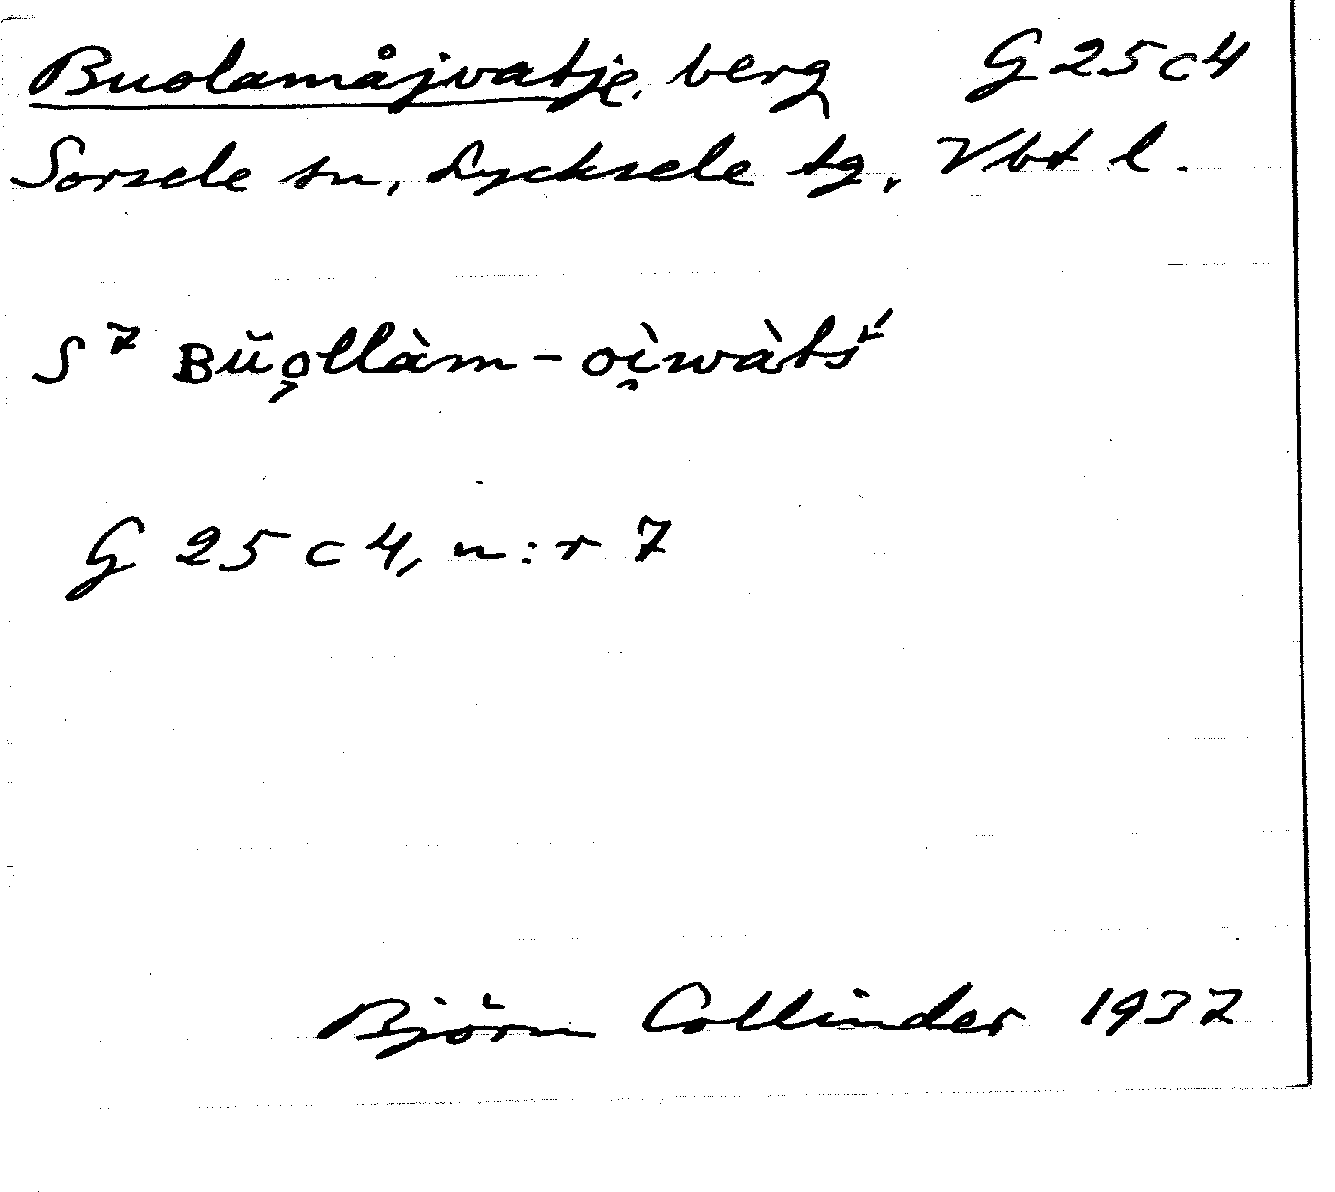 Buolamåjvatje, berg G 25 c 4
Sorsele sn, Lycksele tg, Vbt l.
S 7 Bŭǫllàm-oi̯wàtś
G 25 c 4, n:r 7
Björn Collinder 1937